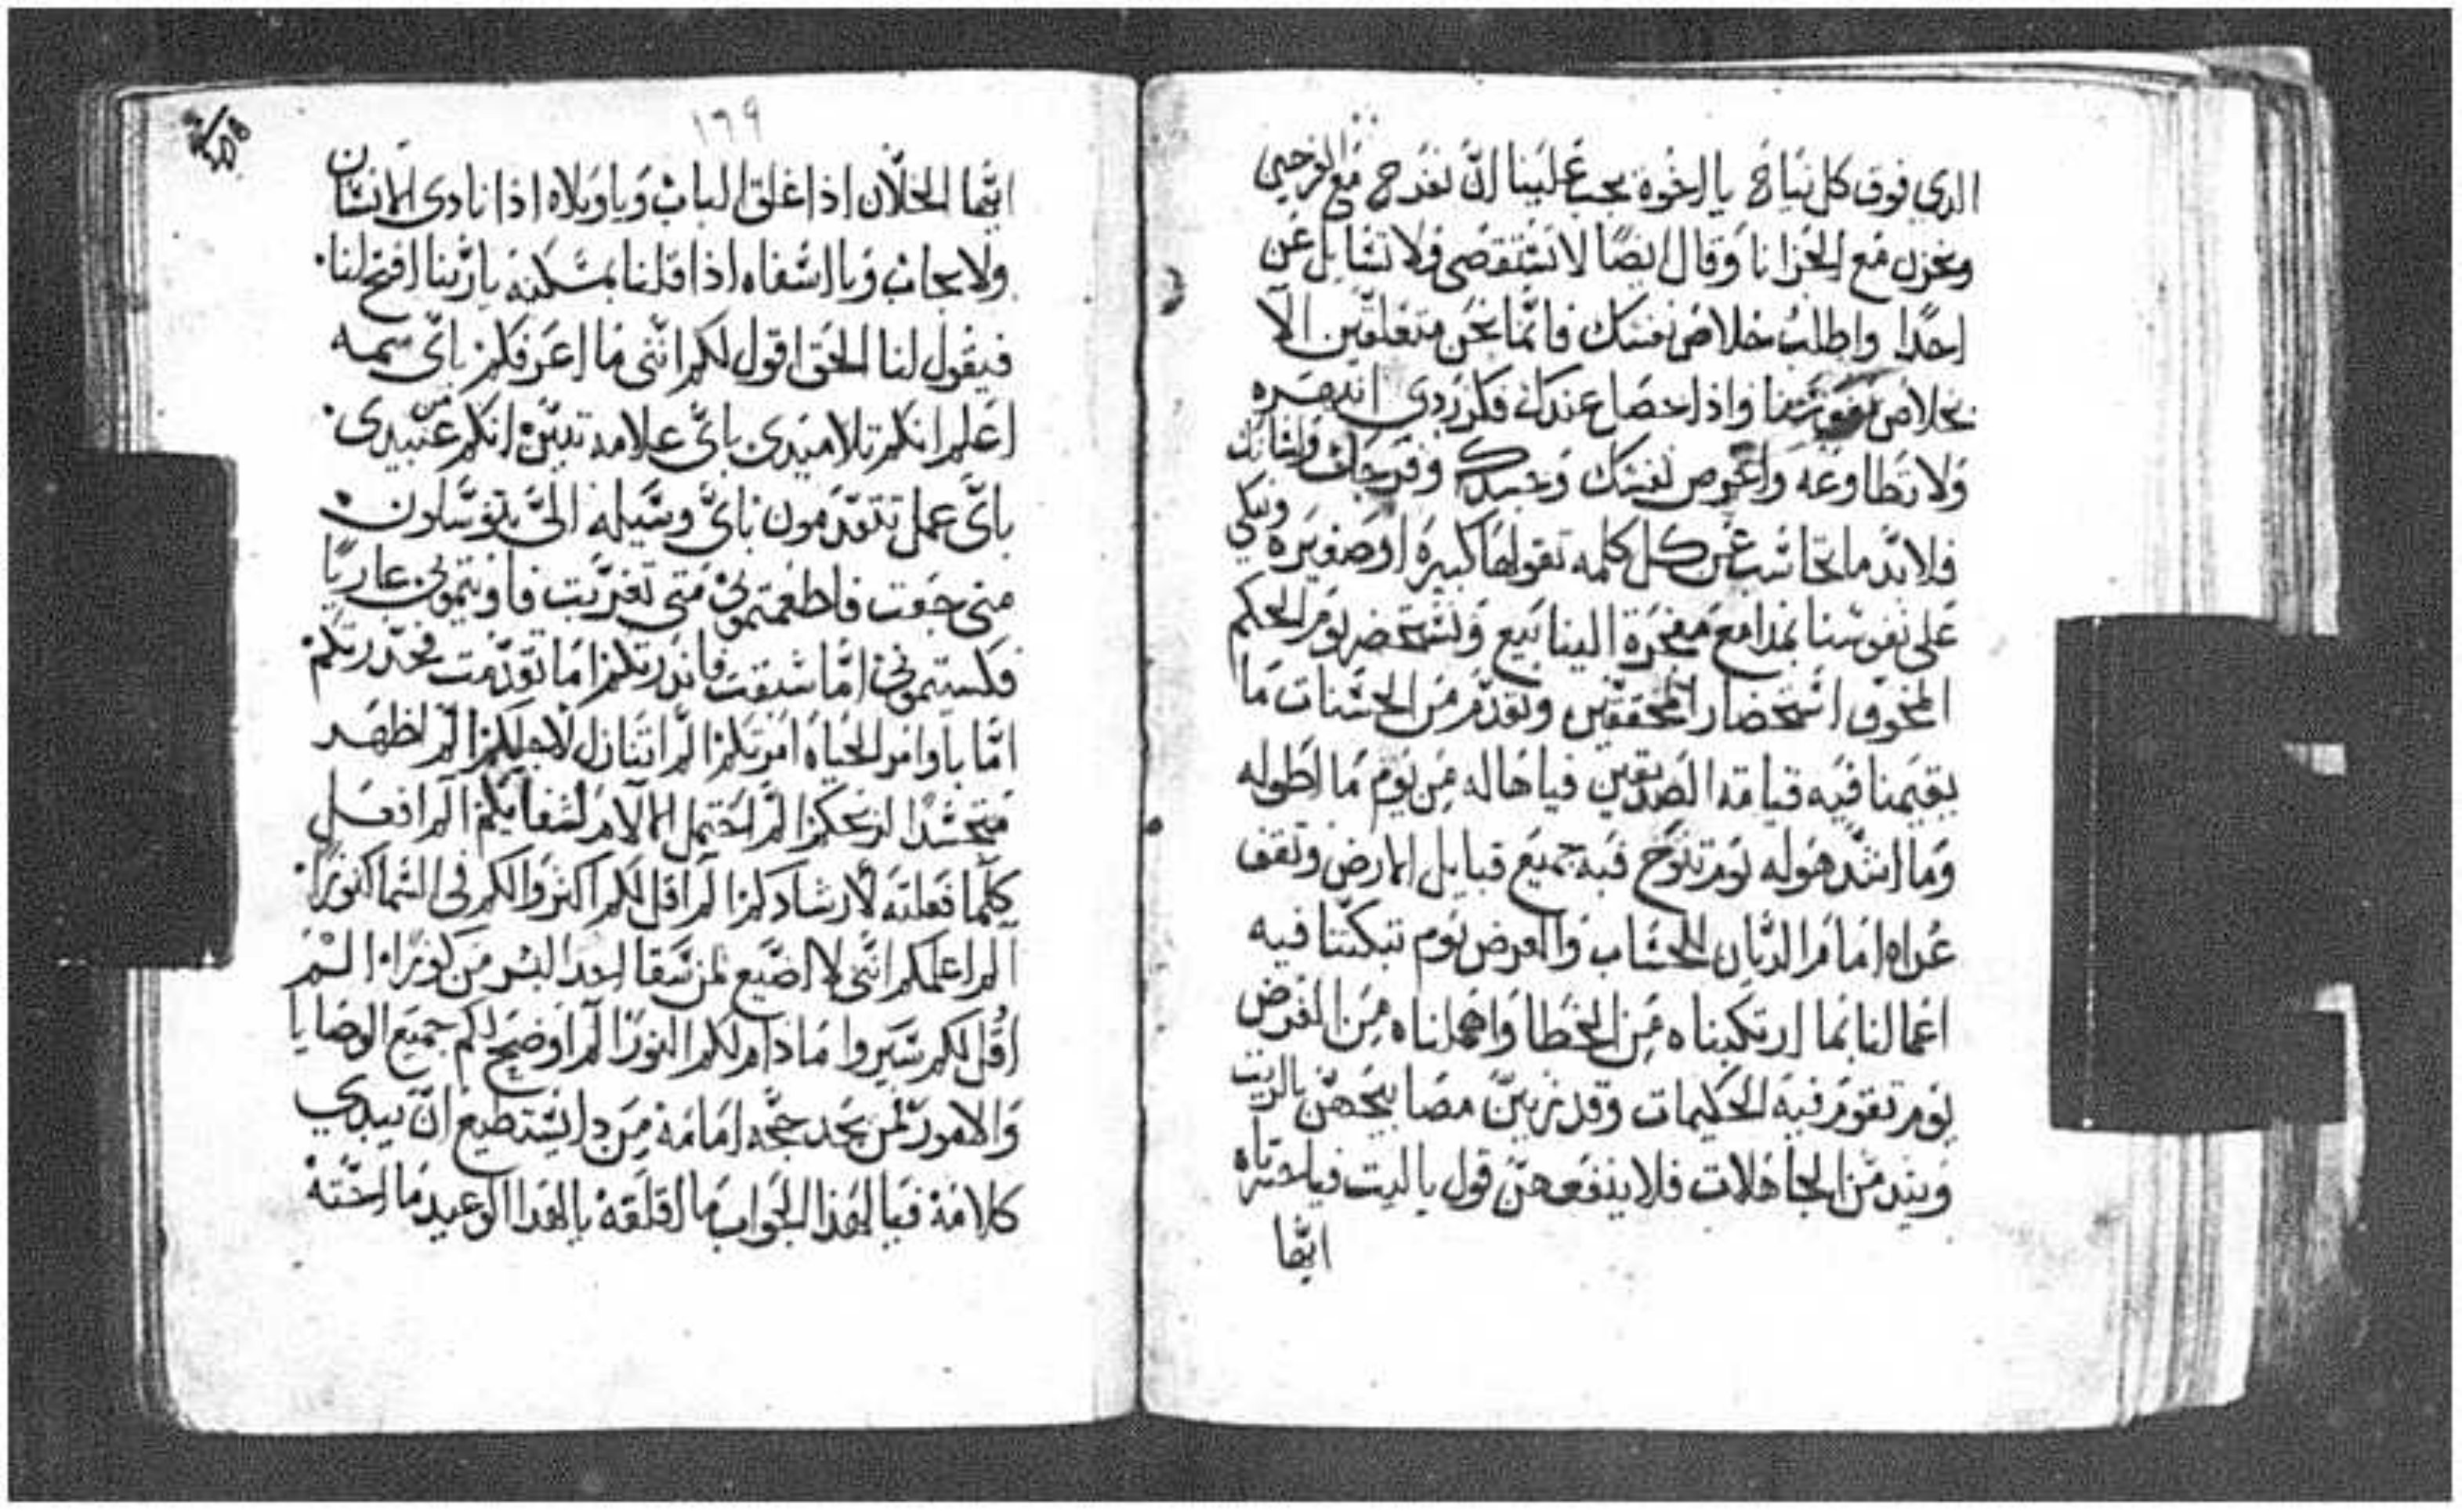 الدي فوق كل نياح يا اخوة يجب علينا ان نفرح مع الفرحين
ونحزن مع الحزانا وقال ايضًا لا تستقصي ولا تسايل عن
احدًا واطلب خلاص نفسك فانما نحن متعلقين الا
بخلاص نفوسنا واذا حضا عندك فكر ردي انتهره
ولا تطاوعه نفسك وجسدك وفرجك ولسانك
فلا بد ما تحاسب عن كل كلمه تقولها كبيرة او صغيره ونبكي
على نفوسنا بمدامع مفجرة الينابيع ونستحضر يوم الحكم
المخوف استحضار المحققين ونقدم من الحسنات ما
يقيمنا فيه قيامة الصديقين فيا هاله من يوم ما اطوله
وما اشد هوله يوم تنوح فيه جميع قبايل الارض ونقف
عراه امام الديان للحساب والعرض يوم تبكتنا فيه
اعمالنا بما ارتكبناه من الخطا واهملناه من الفرض
يوم تقوم فيه الحكيمات وقد زين مصابيحهن بالزيت
ويندمن الجاهلات فلا ينفعهن قول يا ليت فياحسرتاه
ايها
١٦٩
ايها الخلان اذا غلق الباب ويا ويلاه اذا نادى الانسان
ولا يجاب ويا اسفاه اذا قلنا بمسكنه يا ربنا افتح لنا.
فيقول لنا الحق اقول لكم انني ما اعرفكم باي سمه
اعلم انكم تلاميدى باي علامه تبين انكم من عبيدى.
باي عمل تتقدمون باي وسيله الي تتوسلون
متى جعت فاطعمتموني متى تغربت فاويتموني عاريًا
فكسيتموني اما سبقت فاندرتكم اما تقدمت فحدرتكم.
اما باوامر الحياه امرتكم الم اتنازل لاجلكم الم اظهر
متجسدًا لربحكم الم احتمل الالام لشفايكم الم افعل
كلما فعلته لارشادكم الم اقل لكم اكنزوا لكم في السما كنوزًا.
الم اعلمكم انني لا اضيع لمن سقا احدا ليسر من كوز ماء الم
اقل لكم سيروا ما دام لكم النور الم اوضح لكم جميع الوصايا
والامور لمن يجد حجه امامه من دا يستطيع ان يبدي
كلامه فيا لهذا الجواب ما اقلقه يا لهدا الوعيد ما